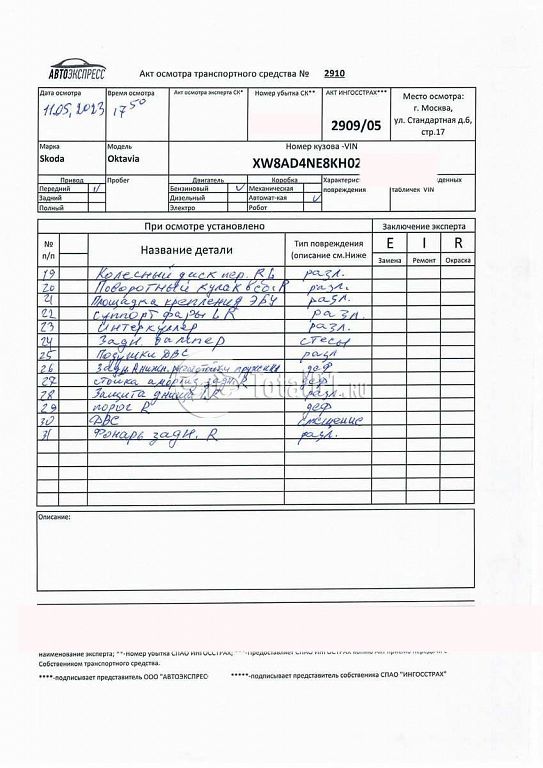 АВТОЭКСПРЕСС
Акт осмотра транспортного средства № 2910
Дата осмотра Время осмотра Акт осмотра эксперта СК* Номер убытка СК** АКТ ИНГОССТРАХ*** Место осмотра:
11.05.2023 17 50 2909/05 г. Москва,
ул. Стандартная д.6,
стр.17
Марка Модель Номер кузова -VIN
Skoda Oktavia XW8AD4NE8KH02
Привод Пробег Двигатель Коробка Характерис денных
Передний Бензиновый Механическая повреждения табличек VIN
Задний Дизельный Автомат-кая
Полный Электро Робот
При осмотре установлено Заключение эксперта
№ п/п Название детали Тип повреждения (описание см.Ниже E I R
Замена Ремонт Окраска
19 Колесный диск пер. RL разл.
20 Поворотный кулак в сб. R разл.
21 Площадка крепления ЭБУ разл.
22 Суппорт фары LR разл.
23 Интеркуллер разл.
24 Задн. бампер стесы
25 Подушки ДВС разл
26 Задн. пружины деф
27 стойка амортиз. задн. R деф
28 Защита днища LR разл.
29 порог R деф
30 ДВС смещение
31 Фонарь задн. R разл.
Описание:
наименование эксперта; **-Номер убытка СПАО ИНГОССТРАХ;
Собствеником транспортного средства.
****-подписывает представитель ООО "АВТОЭКСПРЕС *****-подписывает представитель собственика СПАО "ИНГОССТРАХ"